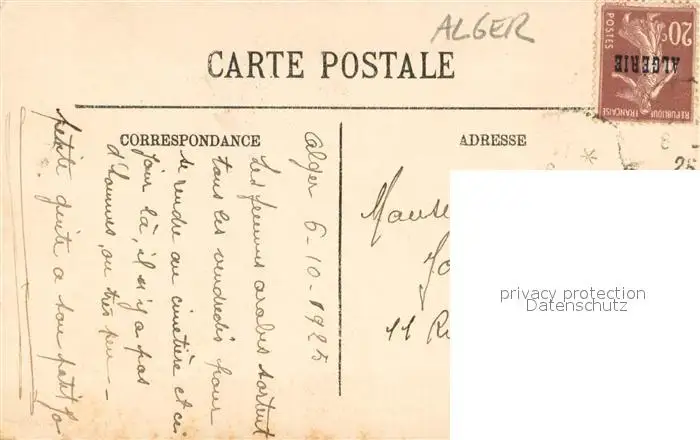 ALGER
CARTE POSTALE
20c
POSTES
ALGERIE
REPUBLIQUE FRANÇAISE
CORRESPONDANCE
ADRESSE
Alger 6-10-1925
Les femmes arabes sortent
tous les vendredis pour
se rendre au cimetière et ce
jour là, il n'y a pas
d'hommes, ou très peu -
petite a son petit
11 R
25
privacy protection
Datenschutz